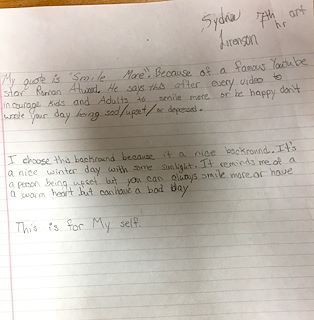 Sydnie 7th hr art
Lirenson
My quote is "Smile More". Because of a famous Youtube
star Roman Atwood. He says this after every video to
incourage kids and Adults to smile more or be happy don't
waste your day being sad/upset/or depressed.
I choose this backround because it a nice backround. It's
a nice winter day with some sunlight. It reminds me of a
a person being upset but you can always smile more or have
a warm heart but can have a bad day
This is for My self.